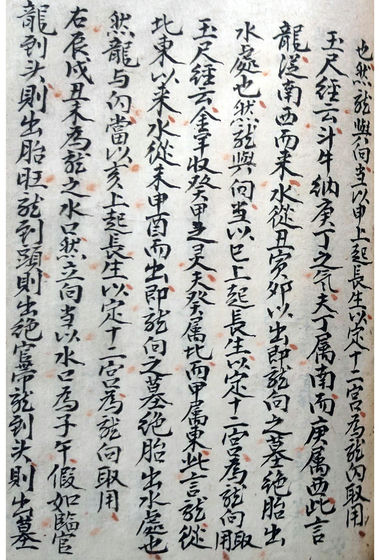 也然龍與向当以甲上起長生以定十二宫為龍向取用
玉尺經云斗牛納庚丁之氣夫丁属南而庚属西此言
龍從南西而来水從丑寅卯以出即龍向之墓絶胎出
水處也然龍與向当以巳上起長生以定十二宫為龍向取用
玉尺經云金羊收癸甲之灵夫癸属北而甲属東此言龍從
北東以来水從未申酉而出即龍向之墓絶胎出水處也
然龍与向當以亥上起長生以定十二宫為龍向取用
右辰戌丑未為龍之水口然立向当以水口為子午假如臨官
龍到头則出胎旺龍到頭則出絶官帶龍到头則出墓